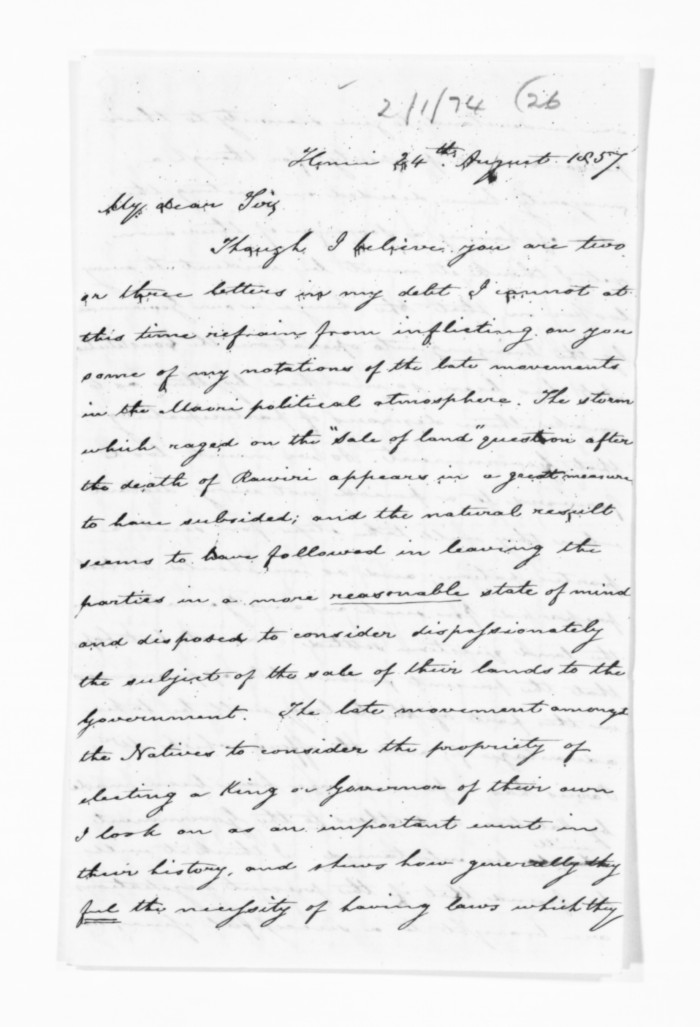 2/1/74 (26
24th August 1857.
My Dear Sir,
Though I believe you are two
or three letters in my debt I cannot at
this time refrain from inflicting on you
some of my notations of the late movements
in the Maori political atmosphere. The storm
which raged on the "sale of land" question after
the death of Rawiri appears in a great measure
to have subsided; and the natural result
seems to have followed in leaving the
parties in a more reasonable state of mind
and disposed to consider dispassionately
the subject of the sale of their lands to the
Government. The late movement amongst
the Natives to consider the propriety of
electing a King or Governor of their own
I look on as an important event in
their history, and shews how generally they
feel the necessity of having laws which they